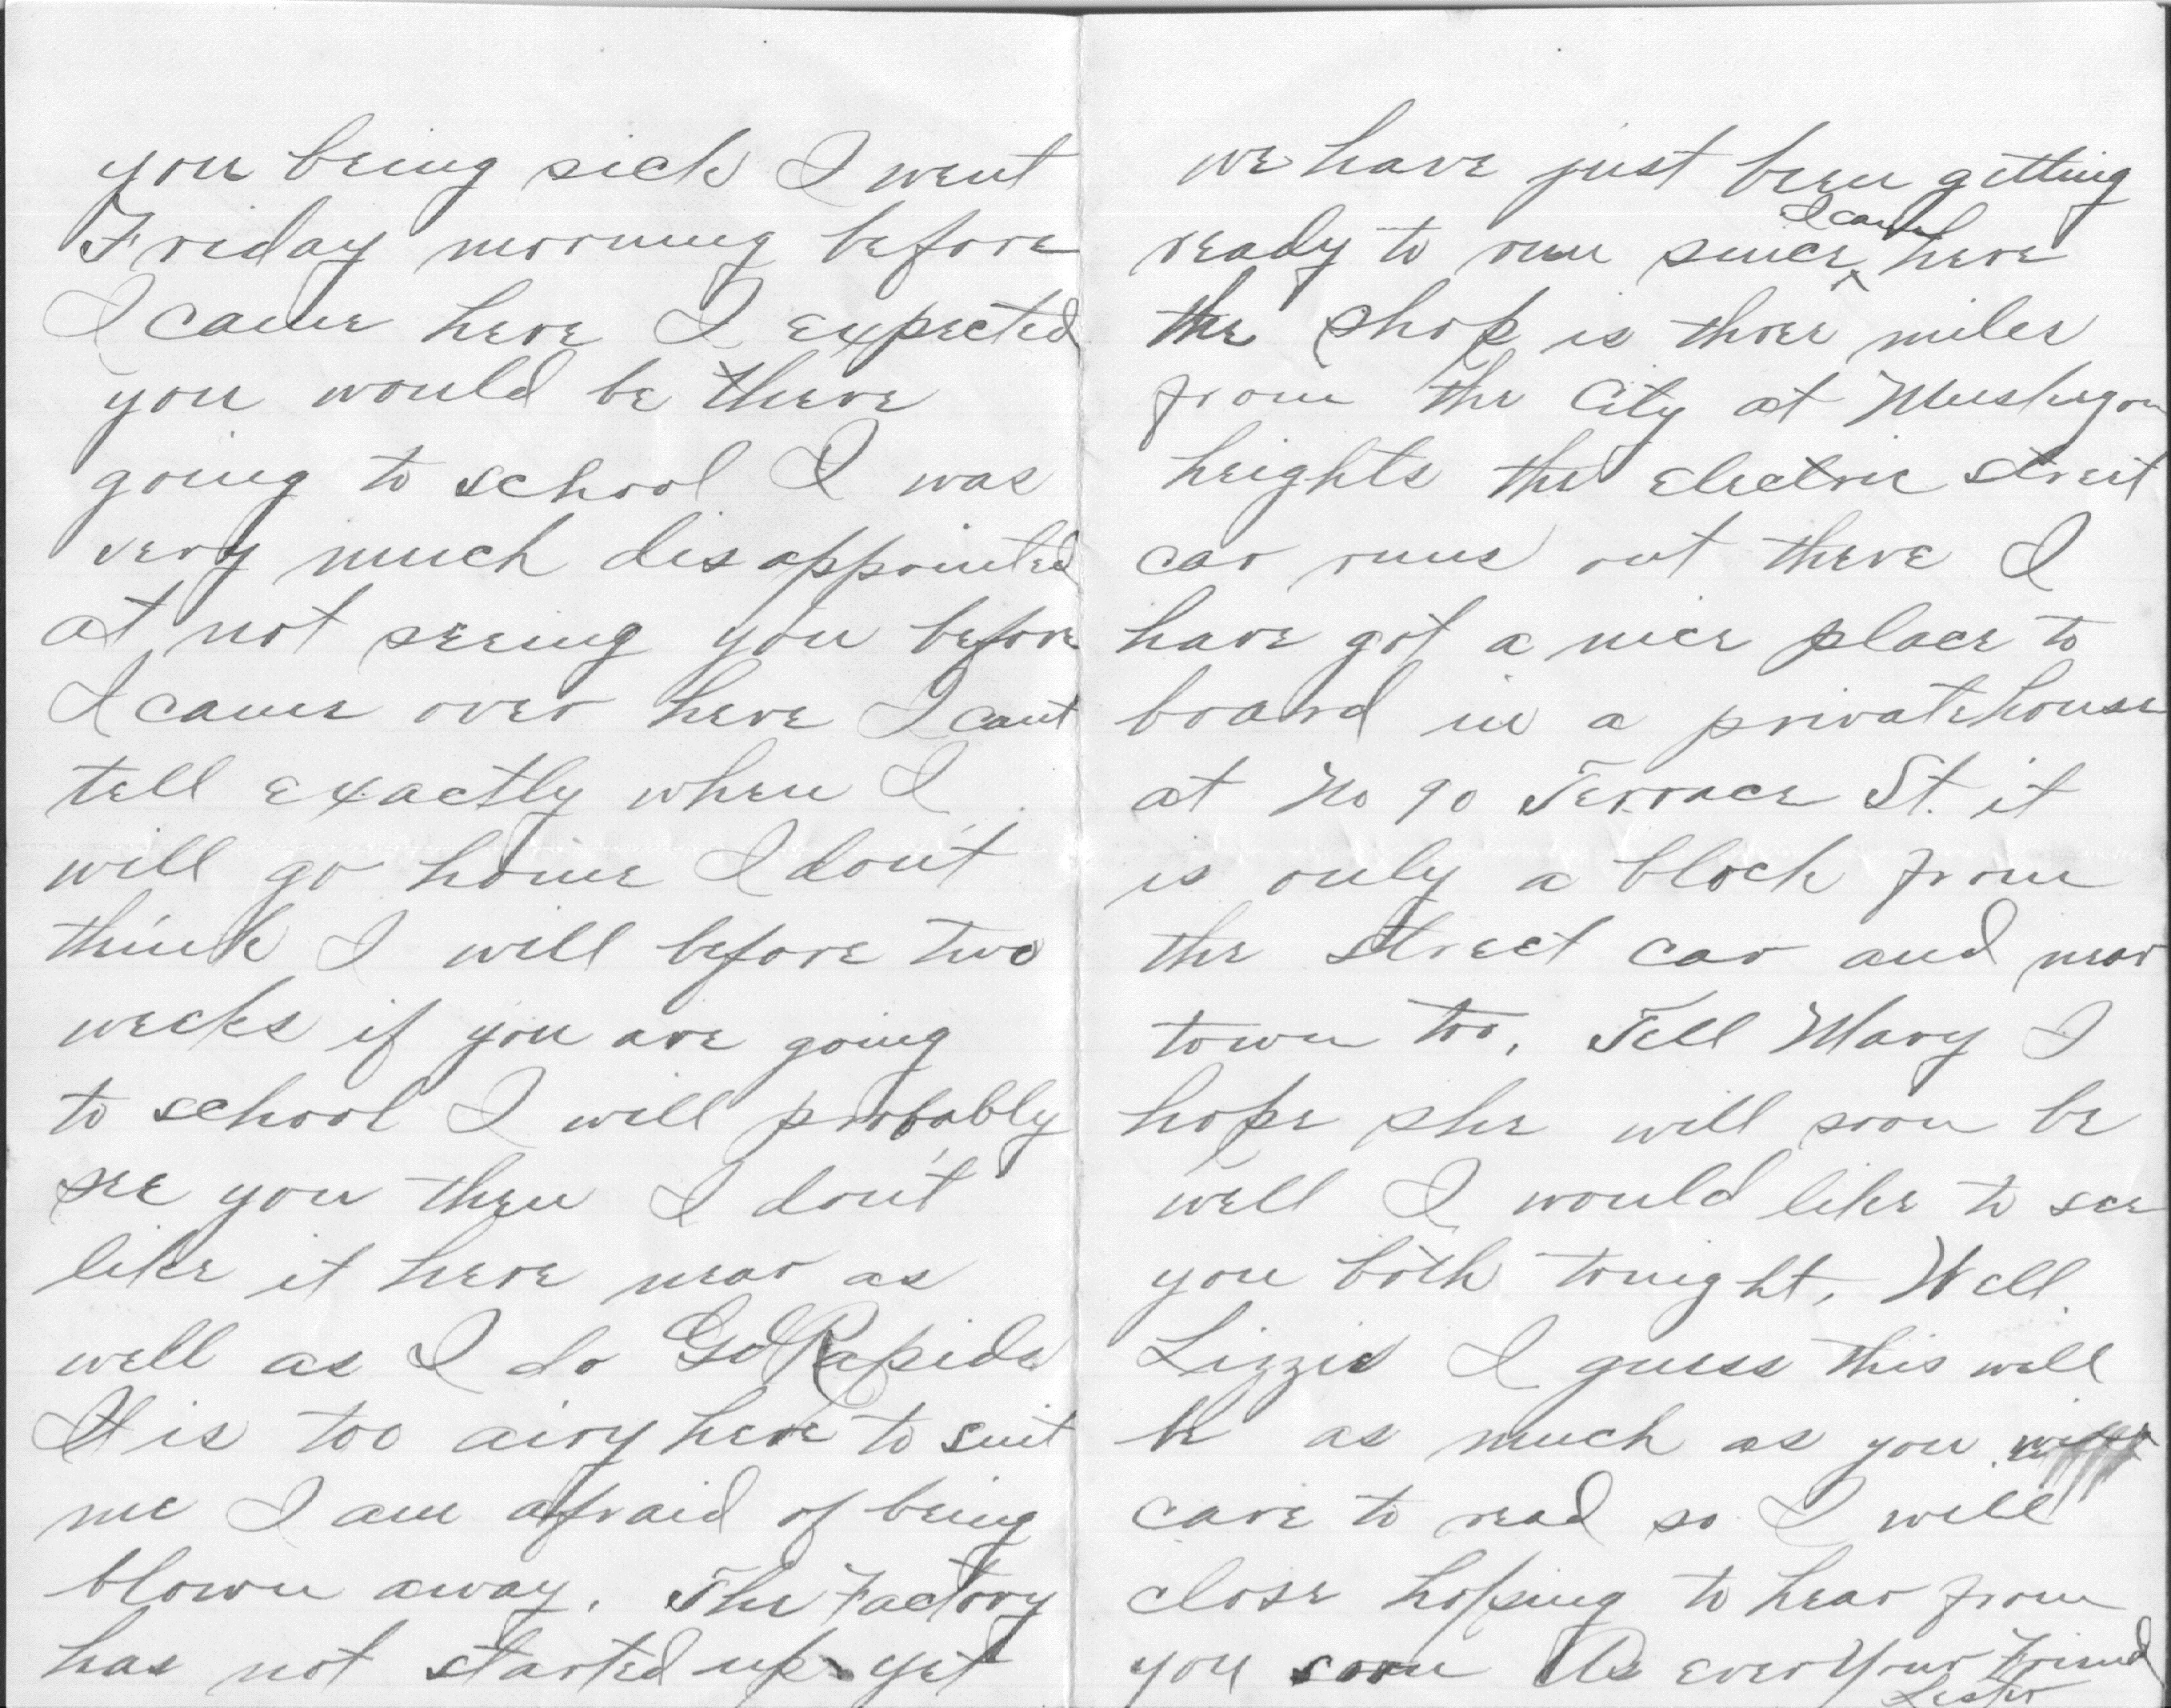 you being sick I went
Friday morning before
I came here I expected
you would be there
going to school I was
very much disappointed
at not seeing you before
I came over here I cant
tell exactly when I
will go home I don't
think I will before two
weeks if you are going
to school I will probably
see you then I don't
like it here near as
well as I do Gd Rapids
It is too airy here to suit
me I am afraid of being
blown away. The Factory
has not started up yet
we have just been getting
ready to run since I came here
the shop is three miles
from the City at Muskegon
heights the electric street
car runs out there I
have got a nice place to
board in a private house
at No 90 Terrace St. it
is only a block from
the street car and near
town too, Tell Mary I
hope she will soon be
well I would like to see
you both tonight, Well
Lizzie I guess this will
be as much as you
care to read so I will
close hoping to hear from
you soon As ever Your Friend
Lester